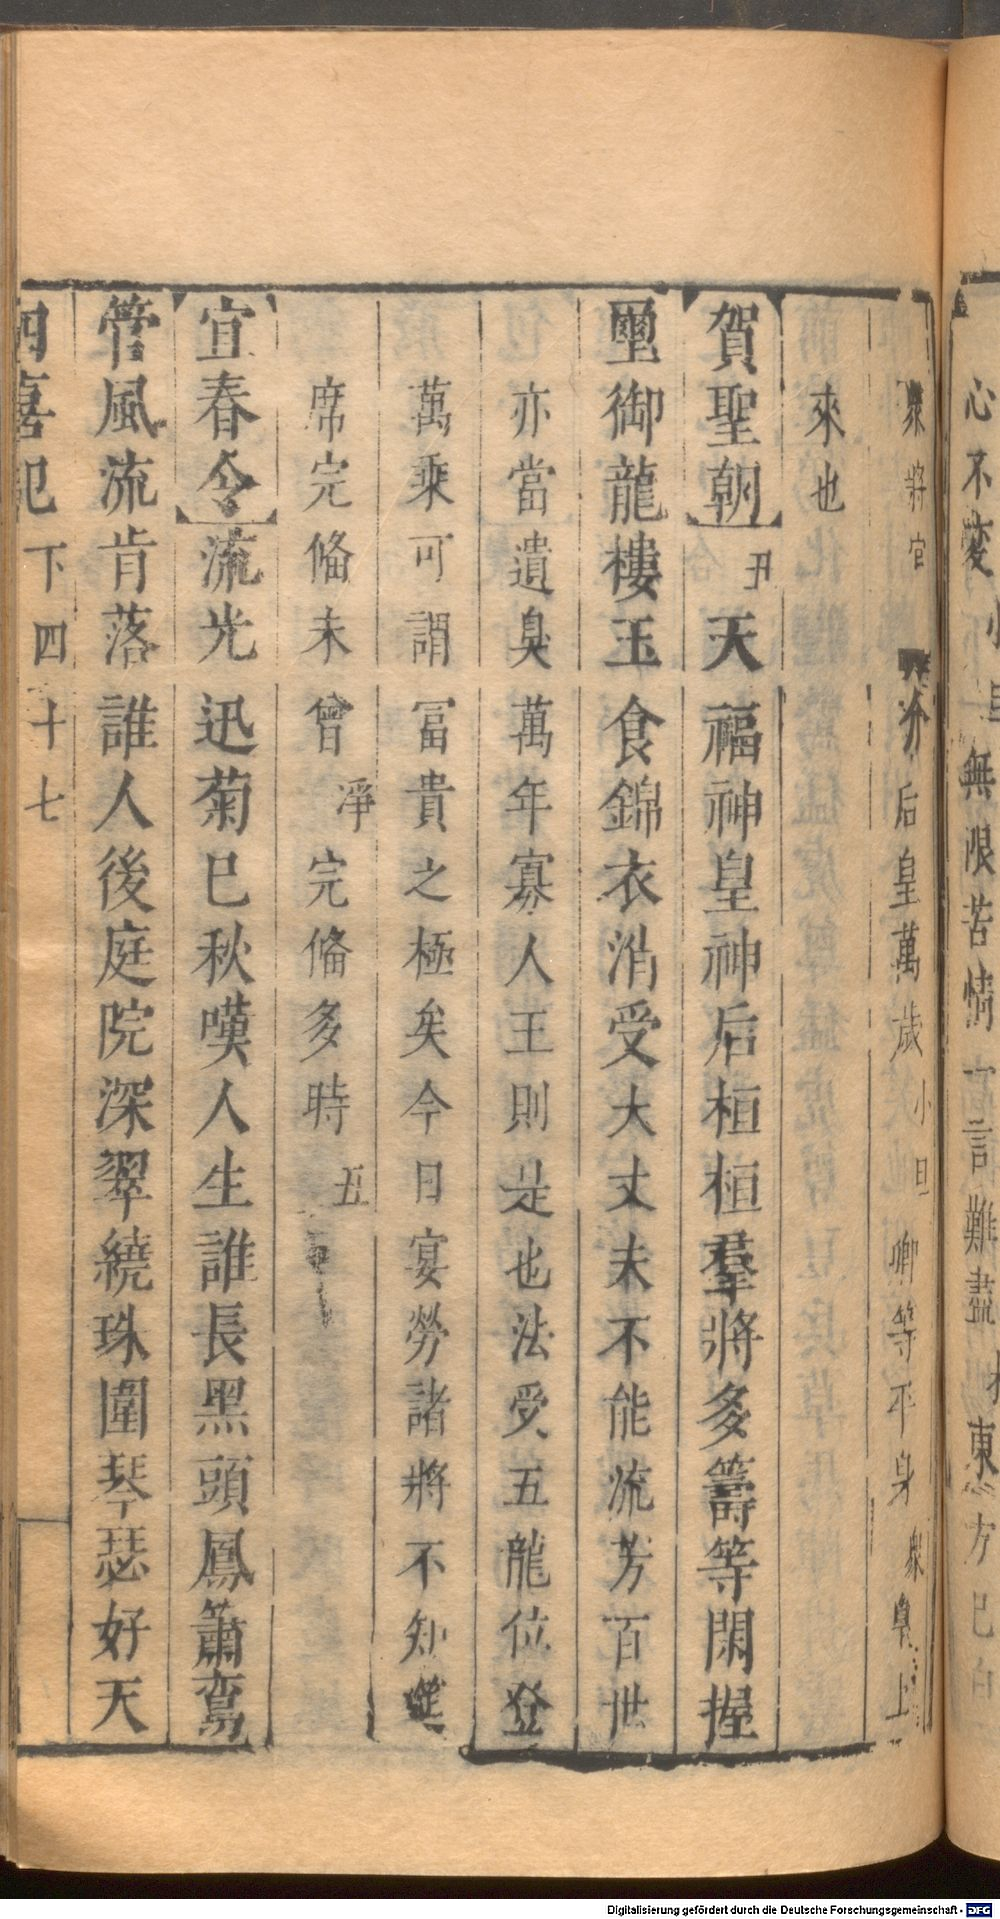 心不变 無限苦情 訴難盡 東方已白
衆將官 介后皇萬歲 小旦 卿等平身 衆 皇上
來也
賀聖朝 丑 天福神皇神后桓桓羣將多籌等閑握
璽御龍樓玉食錦衣消受大丈夫不能流芳百世
亦當遺臭萬年寡人王則是也法受五龍位登
萬乘可謂冨貴之極矣今日宴勞諸將不知筵
席完俻未曾 凈 完俻多時 丑
宜春令 流光迅菊巳秋嘆人生誰長黑頭鳳簫鸞
管風流肯落誰人後庭院深翠繞珠圍琴瑟好天
四喜記 下 四十七
Digitalisierung gefördert durch die Deutsche Forschungsgemeinschaft - DFG